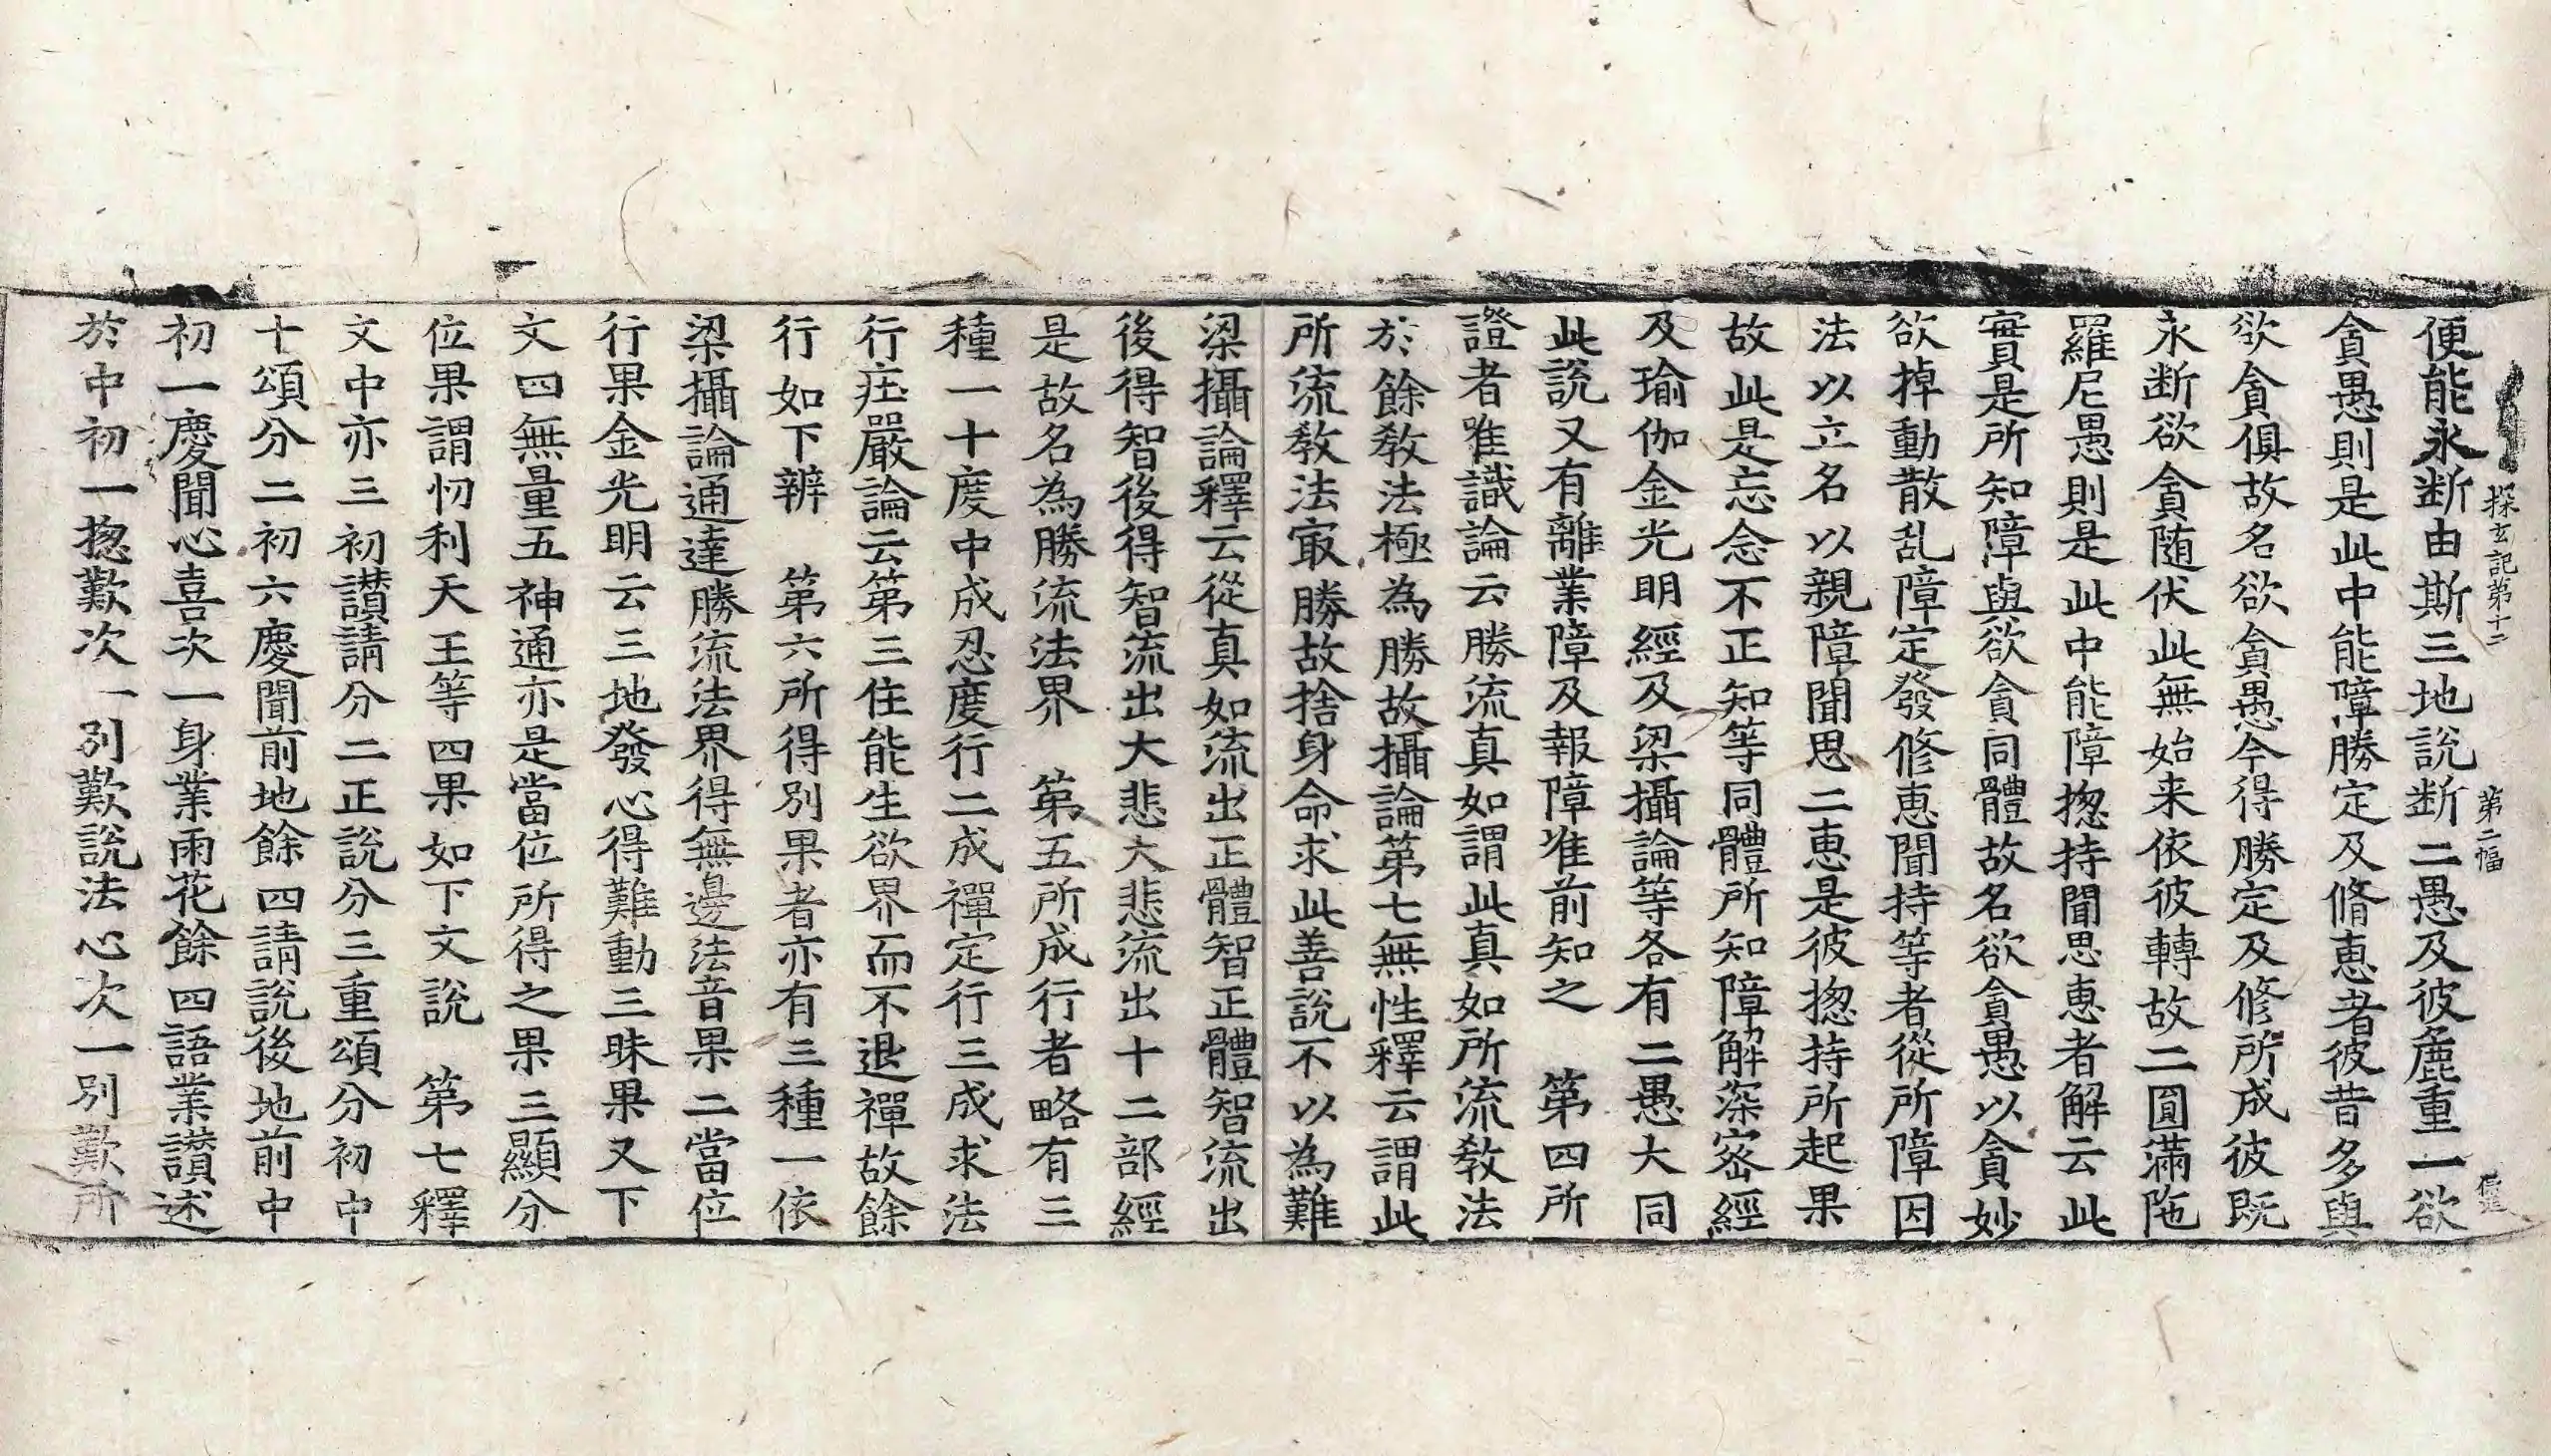 探玄記第十二　第二幅
便能永断由斯三地說断二愚及彼麁重一欲
貪愚則是此中能障勝定及脩恵者彼昔多與
欲貪俱故名欲貪愚今得勝定及修所成彼既
永断欲貪随伏此無始来依彼轉故二圓滿陁
羅尼愚則是此中能障揔持聞思恵者解云此
實是所知障與欲貪同體故名欲貪愚以貪妙
欲掉動散乱障定發修恵聞持等者從所障因
法以立名以親障聞思二恵是彼揔持所起果
故此是忘念不正知等同體所知障解深宻經
及瑜伽金光明經及梁攝論等各有二愚大同
此說又有離業障及報障准前知之　第四所
證者唯識論云勝流真如謂此真如所流教法
於餘教法極為勝故攝論第七無性釋云謂此
所流教法㝡勝故捨身命求此善說不以為難
梁攝論釋云從真如流出正體智正體智流出
後得智後得智流出大悲大悲流出十二部經
是故名為勝流法界　第五所成行者略有三
種一十度中成忍度行二成禪定行三成求法
行庄嚴論云第三住能生欲界而不退禪故餘
行如下辨　第六所得別果者亦有三種一依
梁攝論通達勝流法界得無邊法音果二當位
行果金光明云三地發心得難動三昧果又下
文四無量五神通亦是當位所得之果三顯分
位果謂忉利天王等四果如下文說　第七釋
文中亦三初讃請分二正說分三重頌分初中
十頌分二初六慶聞前地餘四請說後地前中
初一慶聞心喜次一身業雨花餘四語業讃述
於中初一揔歎次一別歎說法心次一別歎所